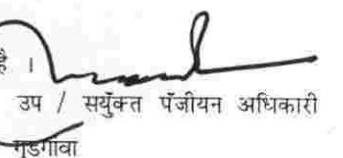 है ।
उप / सयुँक्त पँजीयन अधिकारी
गुडगांवा